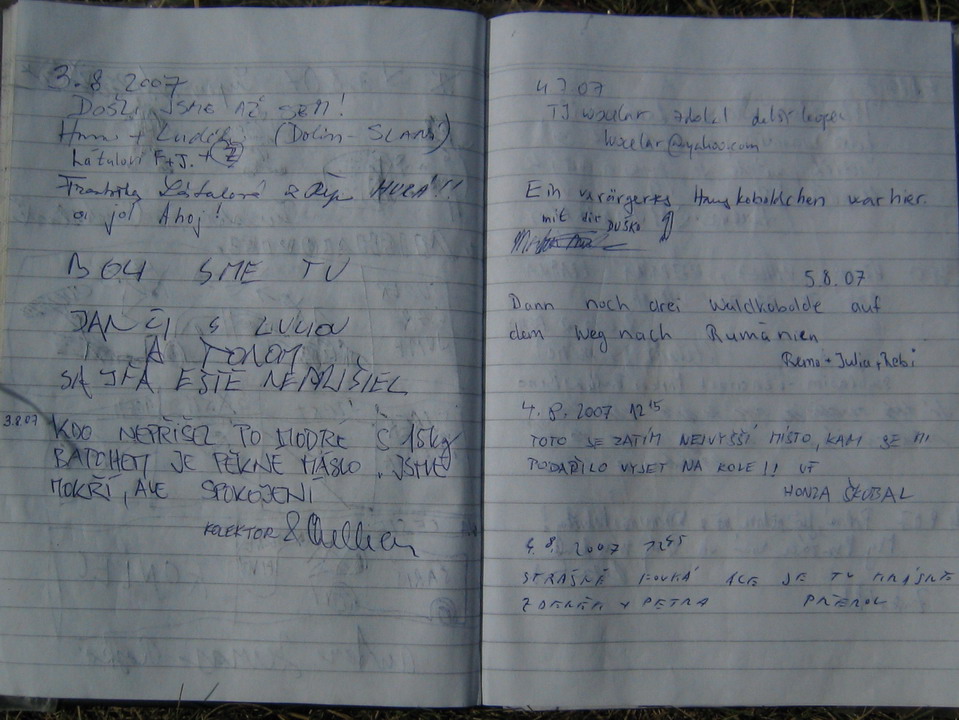 3.8.2007
DOŠLI JSME AŽ SEM!
+ Luděk (Dolin - SLANÝ)
Látaloví F+J.+
Látalová HURÁ!!
aj jol Ahoj!
BOLI SME TU
JANČI S LUCIOU
A TOŇOM
SA JFA EŠTE NEPRIŠIEL
3.8.07 KDO NEPŘIŠEL PO MODRÉ S 15kg
BATOHEM JE PĚKNÉ MÁSLO. JSME
MOKŘÍ, ALE SPOKOJENÍ
KOLEKTOR &
4 8 07
TJ woxelar zdolal další kopec
woxelar@yahoo.com
Ein verärgertes Hauskoboldchen war hier.
mit dir DUŠKO
5.8.07
Dann noch drei Waldkobolde auf
dem Weg nach Rumänien
Remo + Julia + Rebi
4.8.2007 12 15
TOTO JE ZATÍM NEJVYŠŠÍ MÍSTO, KAM SE MI
PODAŘILO VYJET NA KOLE!!
HONZA ŠKUBAL
4.8.2007 12 45
STRAŠNĚ FOUKÁ ALE JE TU KRÁSNĚ
ZDENĚK + PETRA PŘEROV